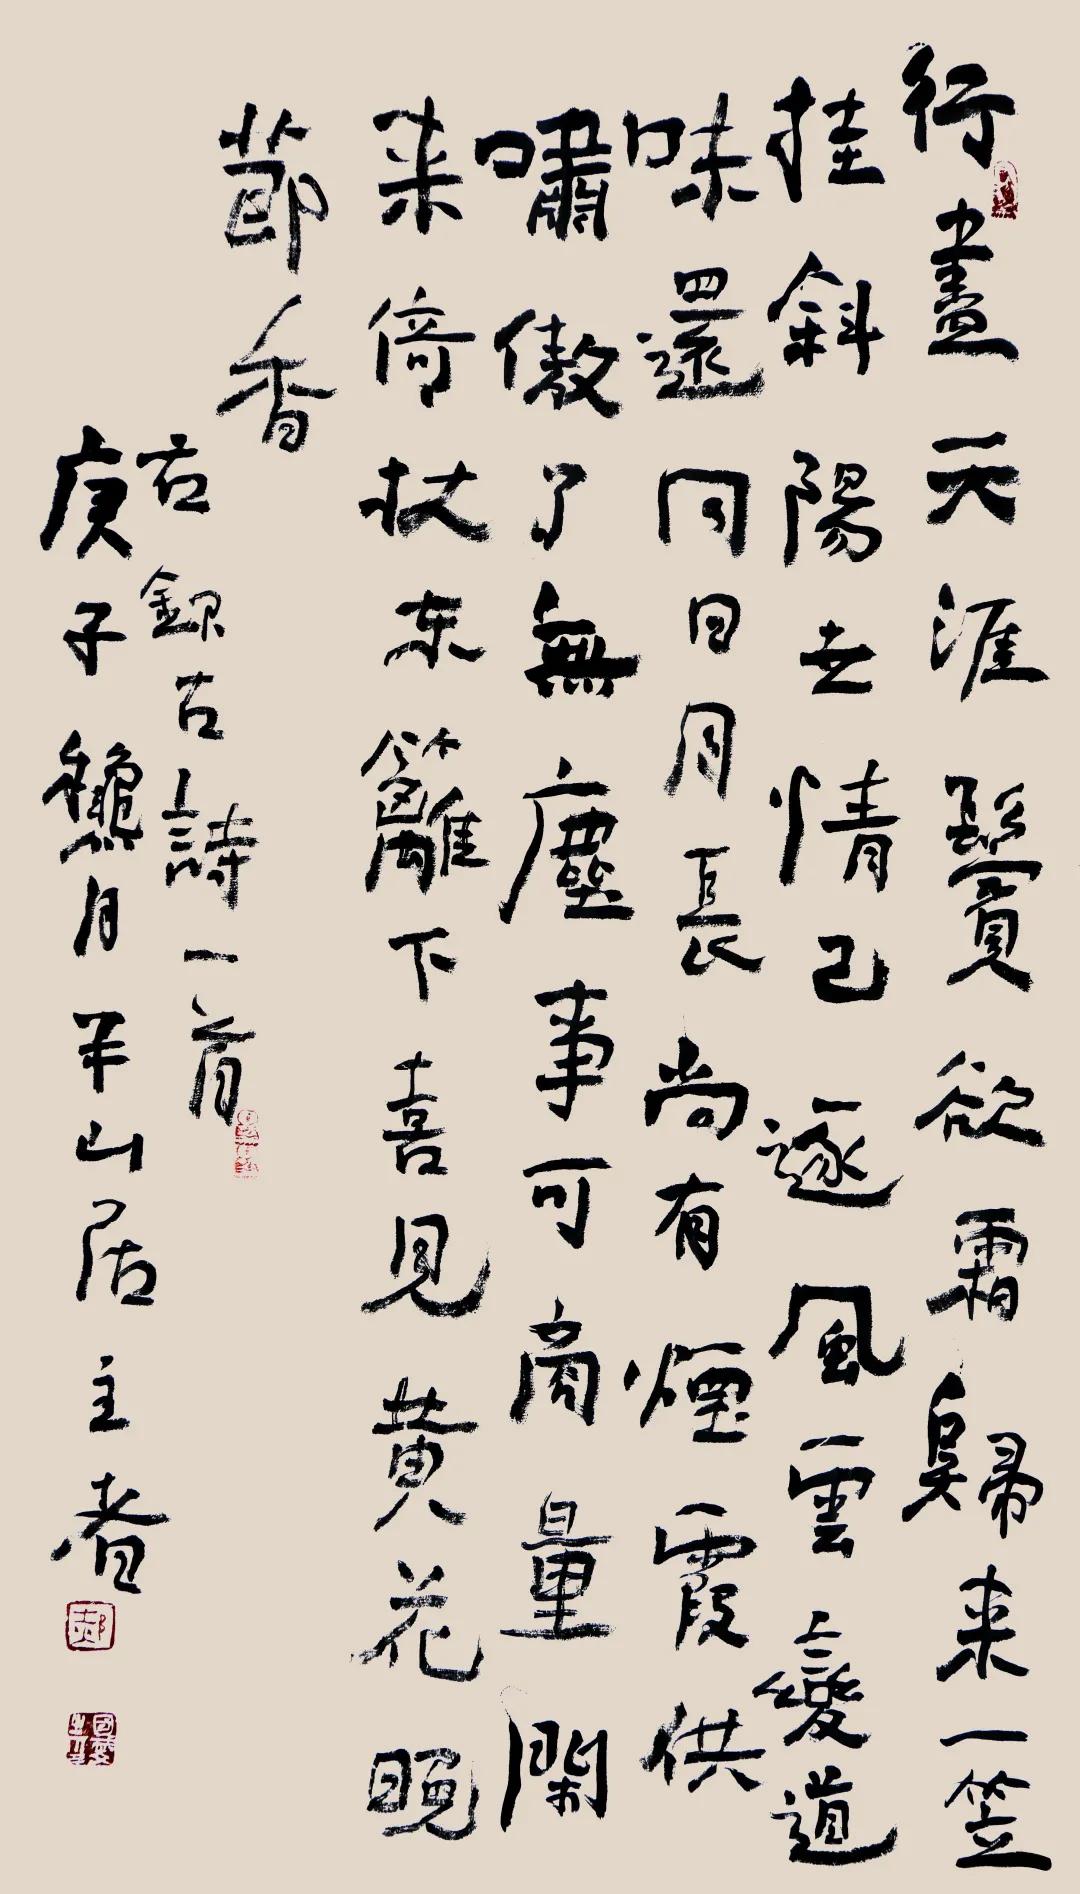 行盡天涯鬢欲霜歸来一笠
挂斜陽世情已逐風雲變道
味還同日月長尚有煙霞供
嘯傲了無塵事可商量閑
来倚杖东籬下喜見黄花晚
節香
右錄古詩一首
庚子龝月半山居主者